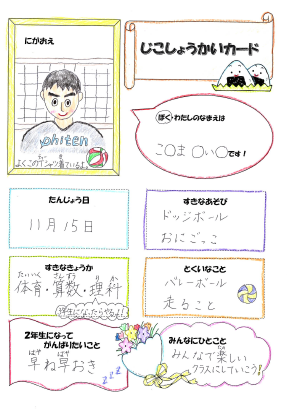 にがおえ
phiten
よくこのTシャツ着ているよ。
じこしょうかいカード
ぼく・わたしのなまえは
こ○ま ○い○です!
たんじょう日
11月15日
すきなあそび
ドッジボール
おにごっこ
すきなきょうか
たいいく さんすう りか
体育・算数・理科
とくいなこと
バレーボール
走ること
2年生になって
がんばりたいこと
はや はや
早ね早おき
zzz
みんなにひとこと
たの
みんなで楽しい
クラスにしていこう!